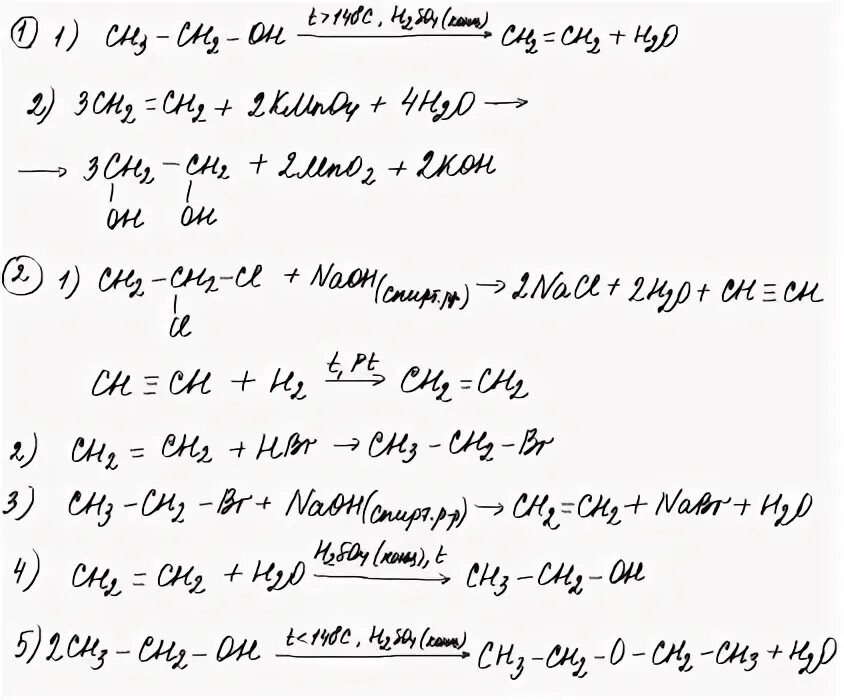 ① 1) CH₃ – CH₂ – OH t>140°C, H₂SO₄(конц) → CH₂ = CH₂ + H₂O
2) 3CH₂ = CH₂ + 2KMnO₄ + 4H₂O →
→ 3CH₂ – CH₂ + 2MnO₂ + 2KOH
OH OH
② 1) CH₂ – CH₂ – Cl + NaOH(спирт.рр) → 2NaCl + 2H₂O + CH ≡ CH
Cl
CH ≡ CH + H₂ t, Pt → CH₂ = CH₂
2) CH₂ = CH₂ + HBr → CH₃ – CH₂ – Br
3) CH₃ – CH₂ – Br + NaOH(спирт.р-р) → CH₂ = CH₂ + NaBr + H₂O
4) CH₂ = CH₂ + H₂O H₂SO₄(конц), t → CH₃ – CH₂ – OH
5) 2CH₃ – CH₂ – OH t<140°C, H₂SO₄(конц) → CH₃ – CH₂ – O – CH₂ – CH₃ + H₂O